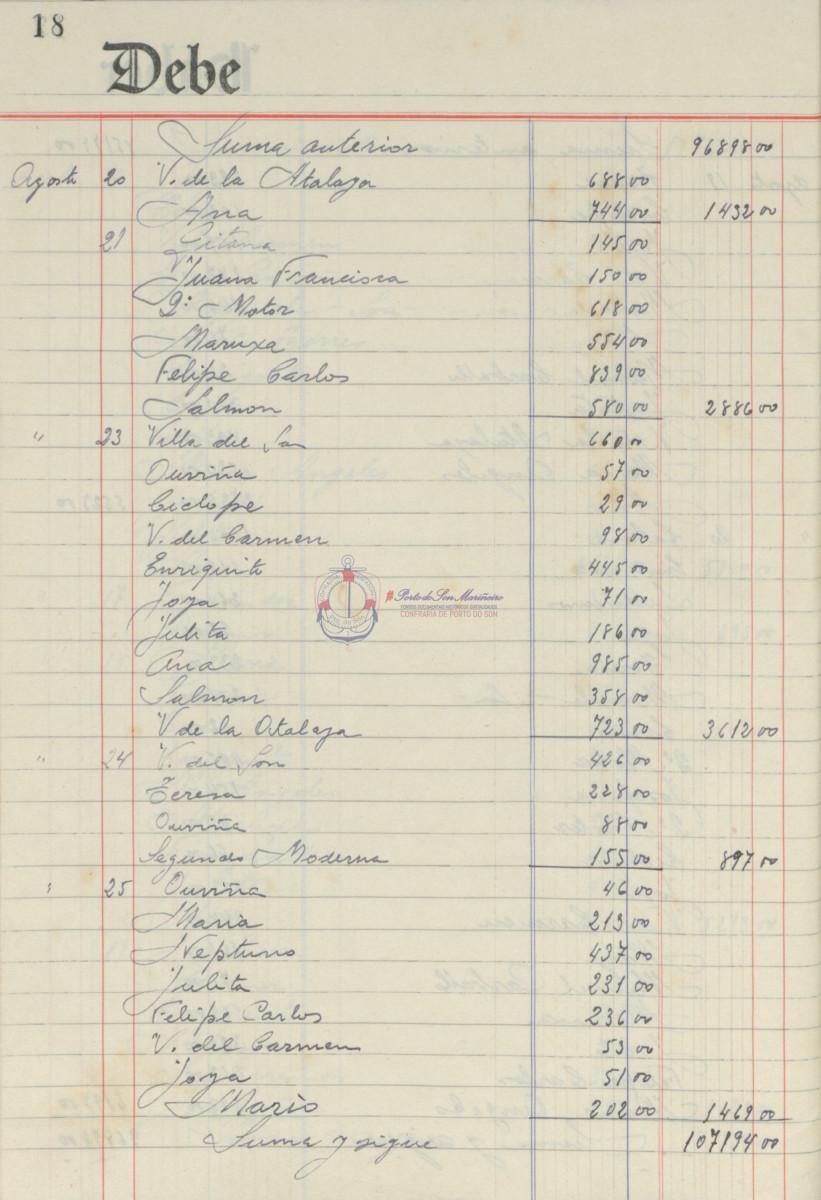 18
Debe
Suma anterior 96898 00
Agosto 20 V. de la Atalaya 688 00
Ana 744 00 1432 00
21 Gitana 145 00
Juana Francisca 150 00
2º Motor 618 00
Maruxa 554 00
Felipe Carlos 839 00
Salmon 580 00 2886 00
" 23 Villa del Son 660 00
Ouviña 57 00
Ciclope 29 00
V. del Carmen 98 00
Enriquito 445 00
Joya 71 00
Julita 186 00
Ana 985 00
Salmon 358 00
V de la Atalaya 723 00 3612 00
" 24 V. del Son 426 00
Teresa 228 00
Ouviña 88 00
Segundo Moderna 155 00 897 00
" 25 Ouviña 46 00
Maria 213 00
Neptuno 437 00
Julita 231 00
Felipe Carlos 236 00
V. del Carmen 53 00
Joya 51 00
Mario 202 00 1469 00
Suma y sigue 107194 00
Porto do Son Mariñeiro
CONFRARÍA DE PORTO DO SON